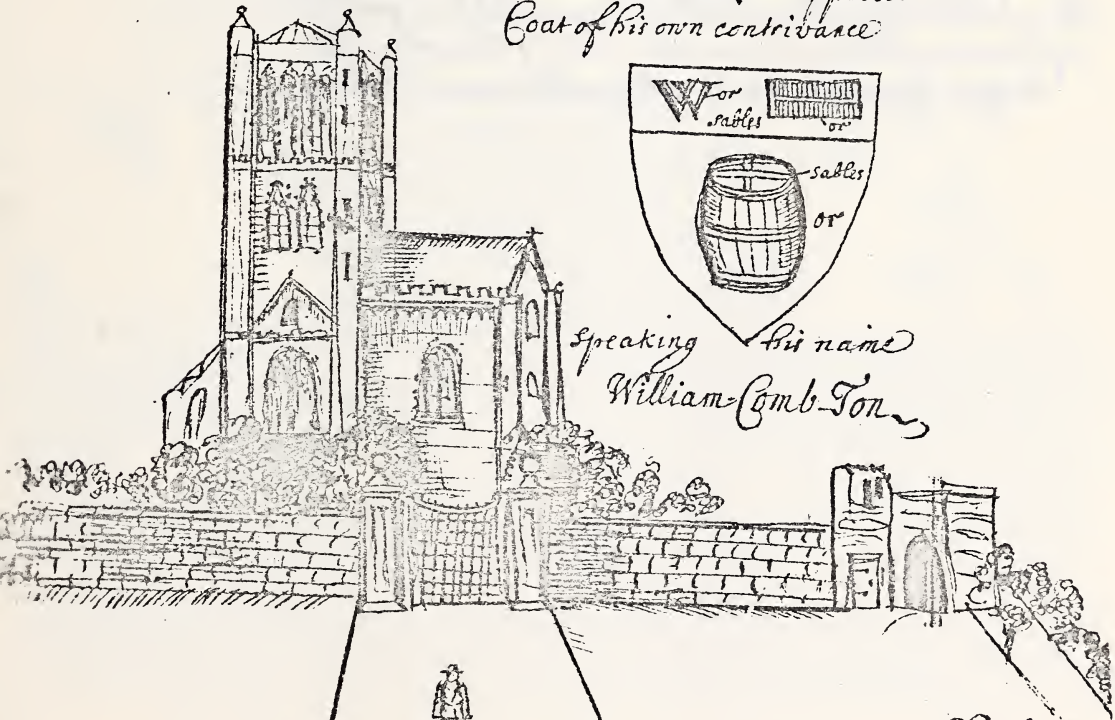 Coat of his own contrivance
W or
sables or
sables
or
speaking his name
William-Comb-Ton